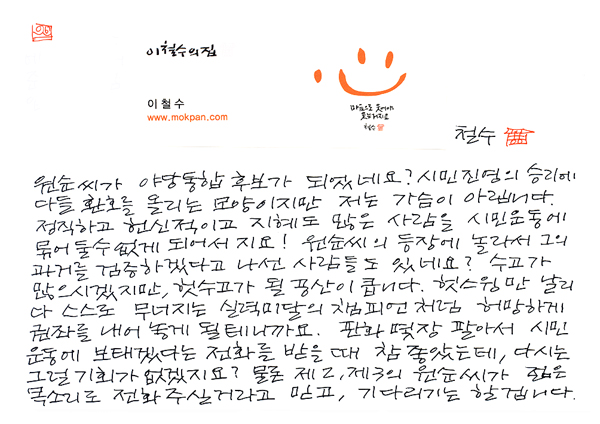 이철수의집
이철수
www.mokpan.com
마음으로 웃어야
웃는거지요
철수
철수
원순씨가 야당통합 후보가 되었네요? 시민진영의 승리에
다들 환호를 올리는 모양이지만 저는 가슴이 아립니다.
정직하고 헌신적이고 지혜도 많은 사람을 시민운동에
묶어둘수 없게 되어서지요! 원순씨의 등장에 놀라서 그의
과거를 검증하겠다고 나선 사람들도 있네요? 수고가
많으시겠지만, 헛수고가 될 공산이 큽니다. 헛스윙만 날리
다 스스로 무너지는 실력미달의 챔피언처럼 허망하게
권좌를 내어 놓게 될테니까요. 판화 몇장 팔아서 시민
운동에 보태겠다는 전화를 받을 때 참 좋았는데, 다시는
그럴 기회가 없겠지요? 물론 제2, 제3의 원순씨가 젊은
목소리로 전화주실거라고 믿고, 기다리기는 할겁니다.